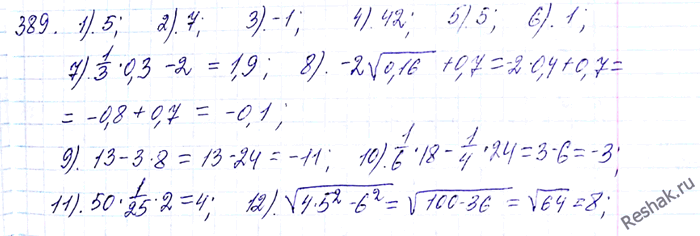 389. 1). 5; 2). 7; 3). -1; 4). 42; 5). 5; 6). 1;
7). 1/3 · 0,3 - 2 = 1,9; 8). -2√0,16 + 0,7 = -2·0,4 + 0,7 =
= -0,8 + 0,7 = -0,1;
9). 13 - 3·8 = 13 - 24 = -11; 10). 1/6 · 18 - 1/4 · 24 = 3 - 6 = -3;
11). 50 · 1/25 · 2 = 4; 12). √(4·5² - 6²) = √(100 - 36) = √64 = 8;
Reshak.ru